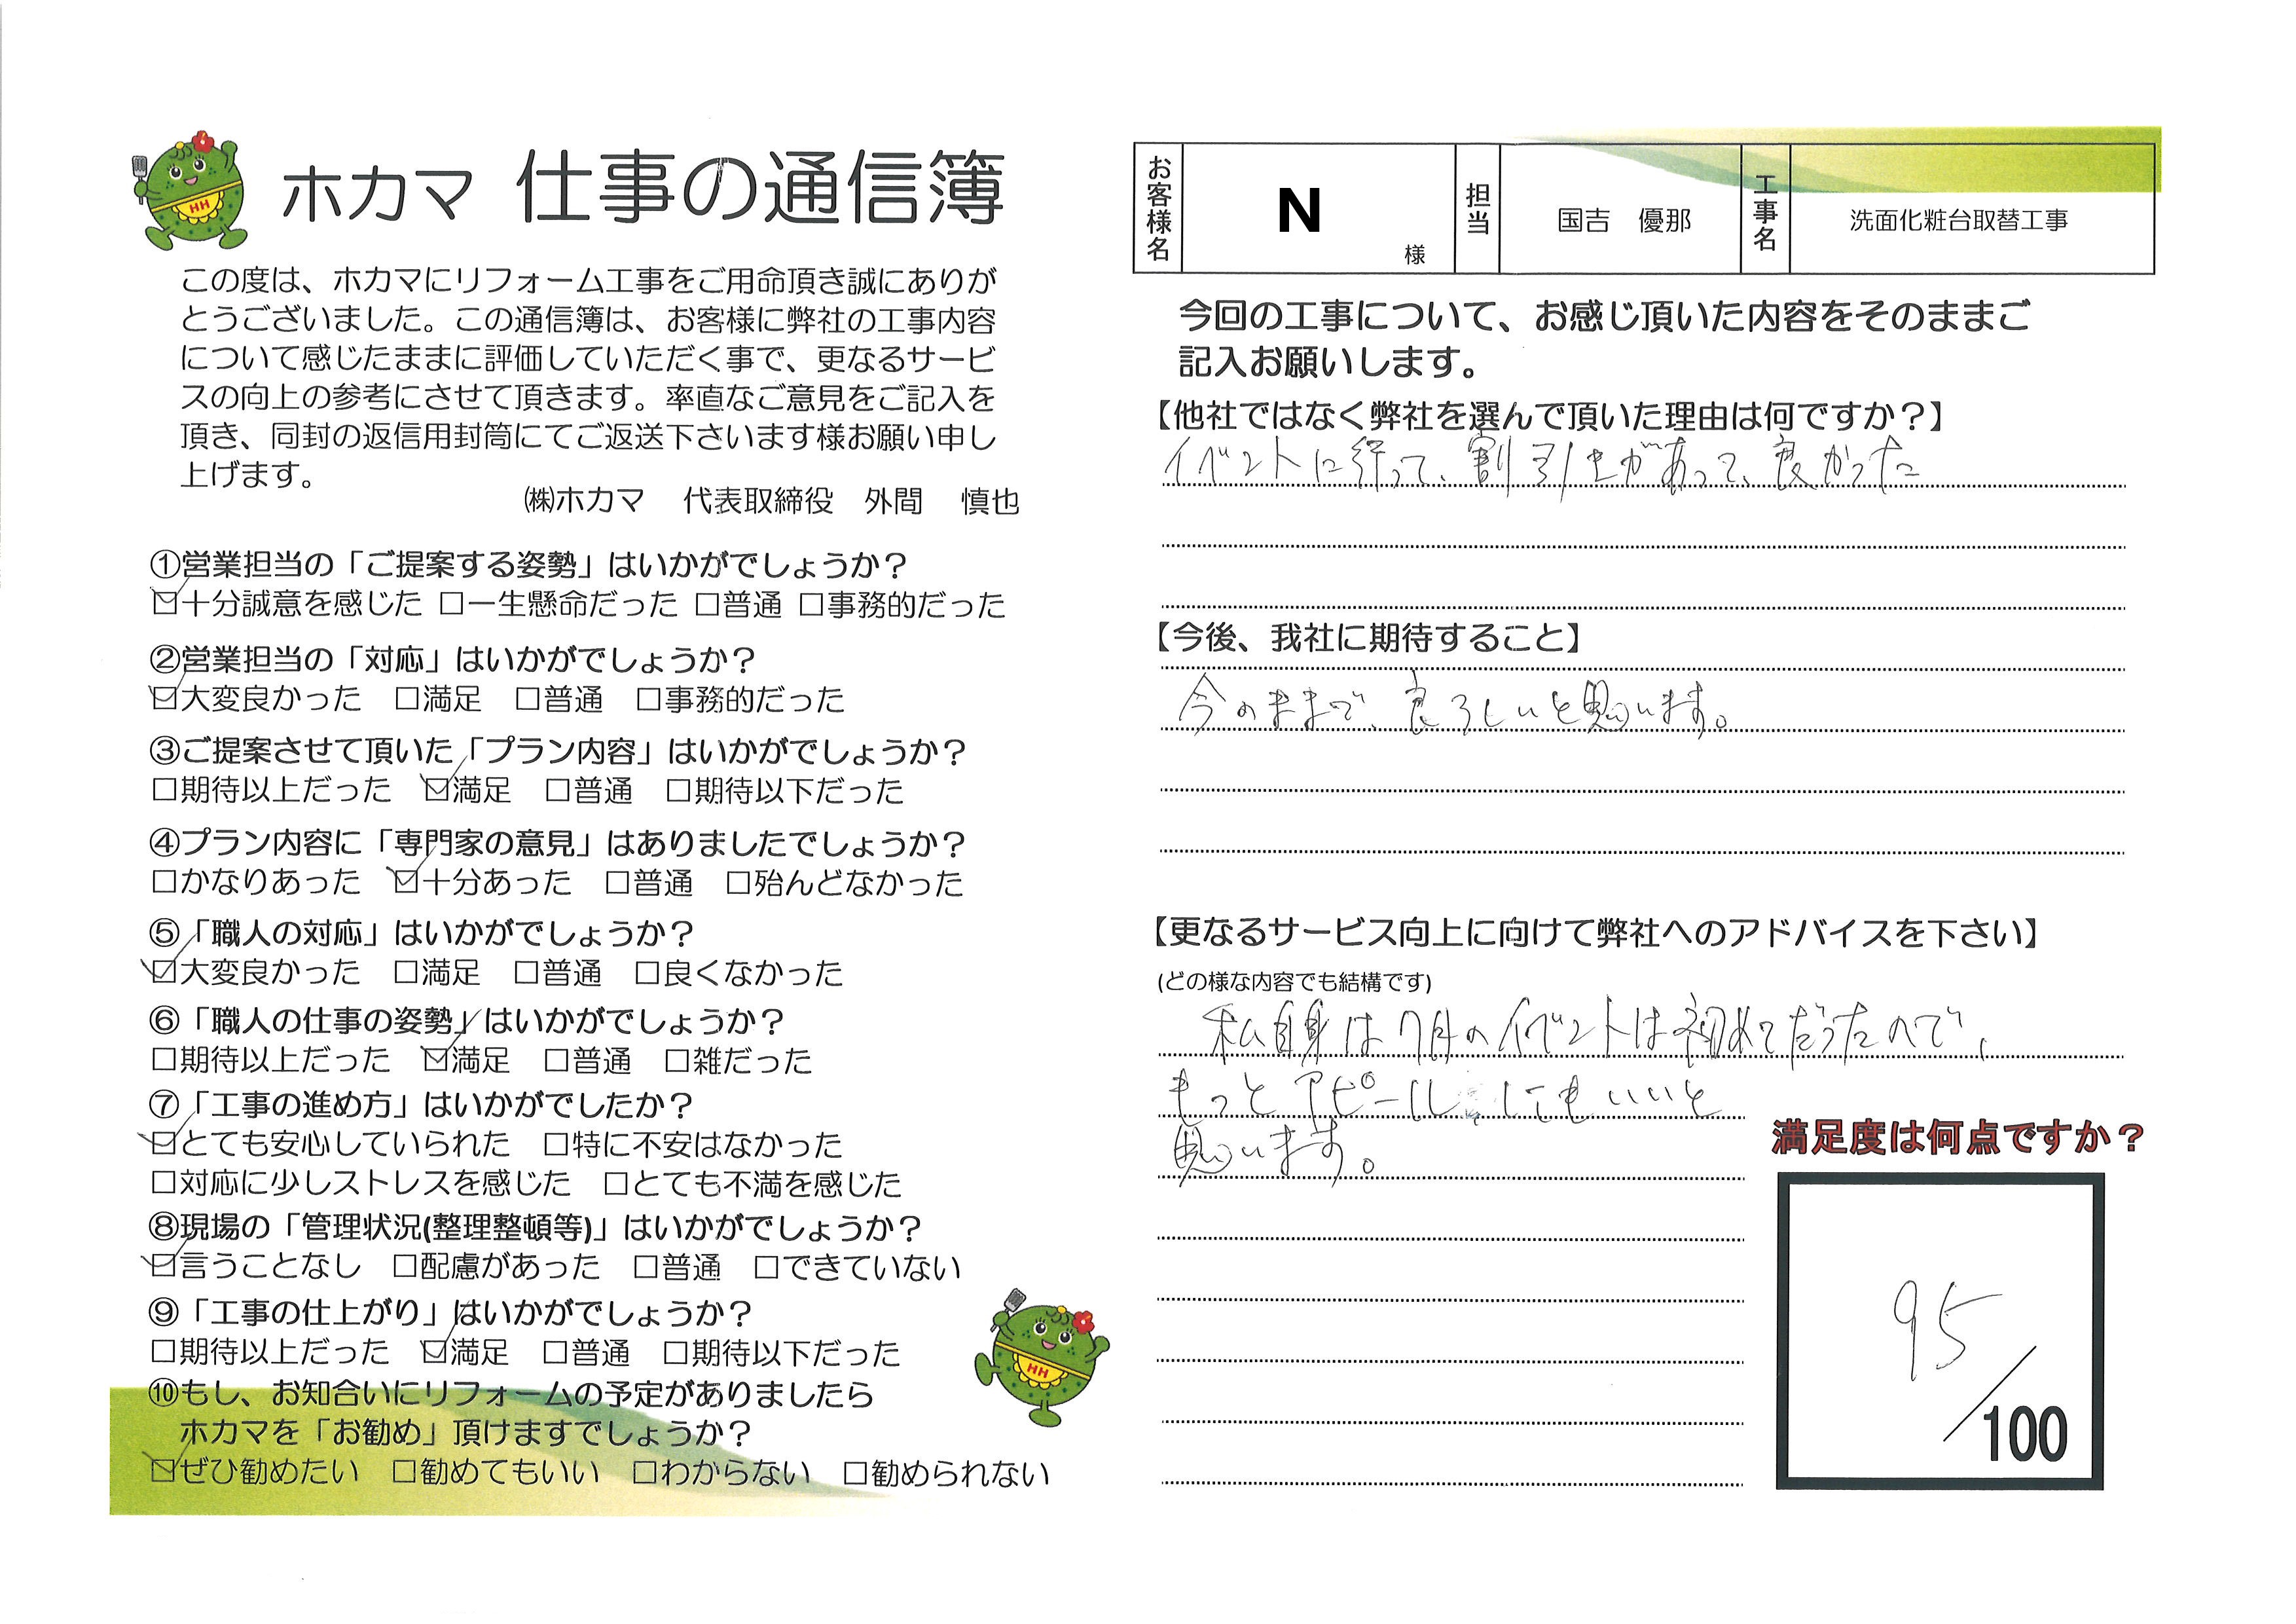 ホカマ 仕事の通信簿
この度は、ホカマにリフォーム工事をご用命頂き誠にありが
とうございました。この通信簿は、お客様に弊社の工事内容
について感じたままに評価していただく事で、更なるサービ
スの向上の参考にさせて頂きます。率直なご意見をご記入を
頂き、同封の返信用封筒にてご返送下さいます様お願い申し
上げます。
㈱ホカマ 代表取締役 外間 慎也
①営業担当の「ご提案する姿勢」はいかがでしょうか？
☑十分誠意を感じた □一生懸命だった □普通 □事務的だった
②営業担当の「対応」はいかがでしょうか？
☑大変良かった □満足 □普通 □事務的だった
③ご提案させて頂いた「プラン内容」はいかがでしょうか？
□期待以上だった ☑満足 □普通 □期待以下だった
④プラン内容に「専門家の意見」はありましたでしょうか？
□かなりあった ☑十分あった □普通 □殆んどなかった
⑤「職人の対応」はいかがでしょうか？
☑大変良かった □満足 □普通 □良くなかった
⑥「職人の仕事の姿勢」はいかがでしょうか？
□期待以上だった ☑満足 □普通 □雑だった
⑦「工事の進め方」はいかがでしたか？
☑とても安心していられた □特に不安はなかった
□対応に少しストレスを感じた □とても不満を感じた
⑧現場の「管理状況(整理整頓等)」はいかがでしょうか？
☑言うことなし □配慮があった □普通 □できていない
⑨「工事の仕上がり」はいかがでしょうか？
□期待以上だった ☑満足 □普通 □期待以下だった
⑩もし、お知合いにリフォームの予定がありましたら
ホカマを「お勧め」頂けますでしょうか？
☑ぜひ勧めたい □勧めてもいい □わからない □勧められない
HH
HH
お客様名 N 様 担当 国吉 優那 工事名 洗面化粧台取替工事
今回の工事について、お感じ頂いた内容をそのままご
記入お願いします。
【他社ではなく弊社を選んで頂いた理由は何ですか？】
イベントに行って、割引きがあって、良かった
【今後、我社に期待すること】
今のままで、良ろしいと思います。
【更なるサービス向上に向けて弊社へのアドバイスを下さい】
(どの様な内容でも結構です)
私自身は7月のイベントは初めてだったので、
もっとアピールしてもいいと
思います。
満足度は何点ですか？
95
/100